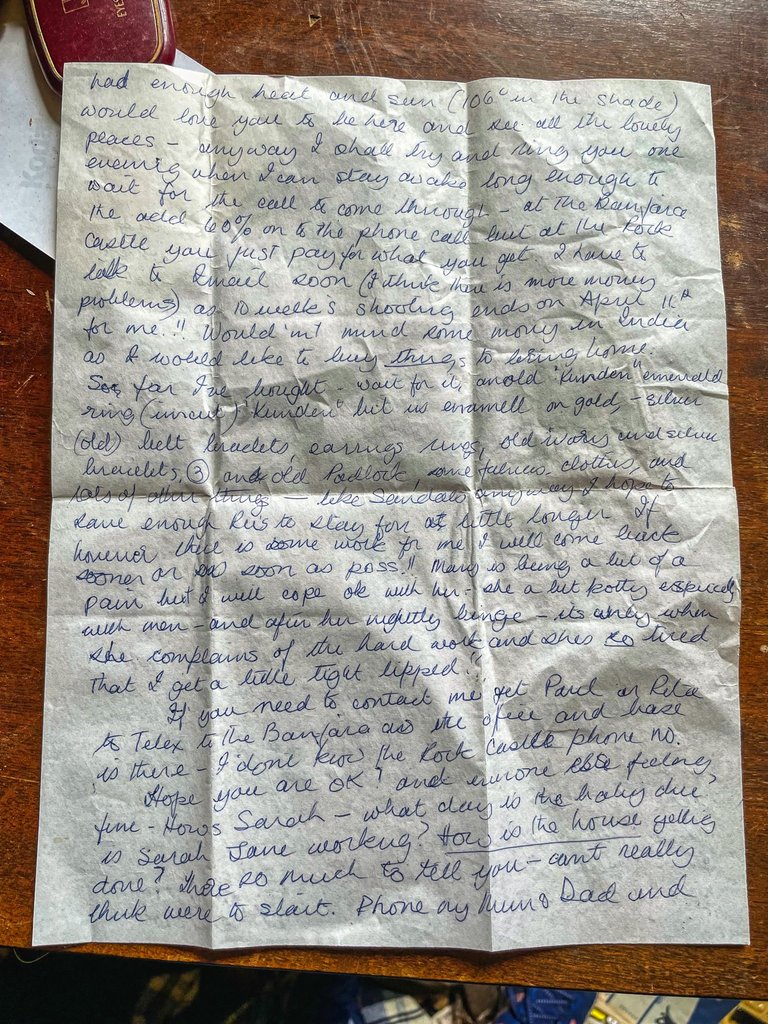 had enough heat and sun (106° in the shade)
would love you to be here and see all the lovely
places - anyway I shall try and ring you one
evening when I can stay awake long enough to
wait for the call to come through - at the Banjara
the add 60% on to the phone call but at the Rock
Castle you just pay for what you get. I have to
talk to Ismail soon (I think there is more money
problems) as 10 week's shooting ends on April 11th
for me!! Would'nt mind some money in India
as I would like to buy things to bring home.
So far I've bought - wait for it, an old "Kunden" emerald
ring (uncut) "Kunden" but is enamell on gold, - silver
(old) belt bracelets, earrings rings, old ivory and silver
bracelets, (3) and old Padlock, some fabrics, clothes, and
lots of other things - like Sandals anyway I hope to
have enough Rs to stay for a little longer. If
however there is some work for me I will come back
sooner or as soon as poss!! Mary is being a bit of a
pain but I will cope ok with her - she a bit potty especially
with men - and after her nightly binge - its only when
she complains of the hard work and shes so tired
that I get a little tight lipped!!
If you need to contact me get Paul or Rita
to Telex to the Banjara as the office and base
is there - I dont know the Rock Castle phone no.
Hope you are OK? and everyone else feeling
fine - Hows Sarah - what day is the baby due,
is Sarah Jane working? How is the house getting
done? There so much to tell you - cant really
think were to start. Phone my Mum & Dad and